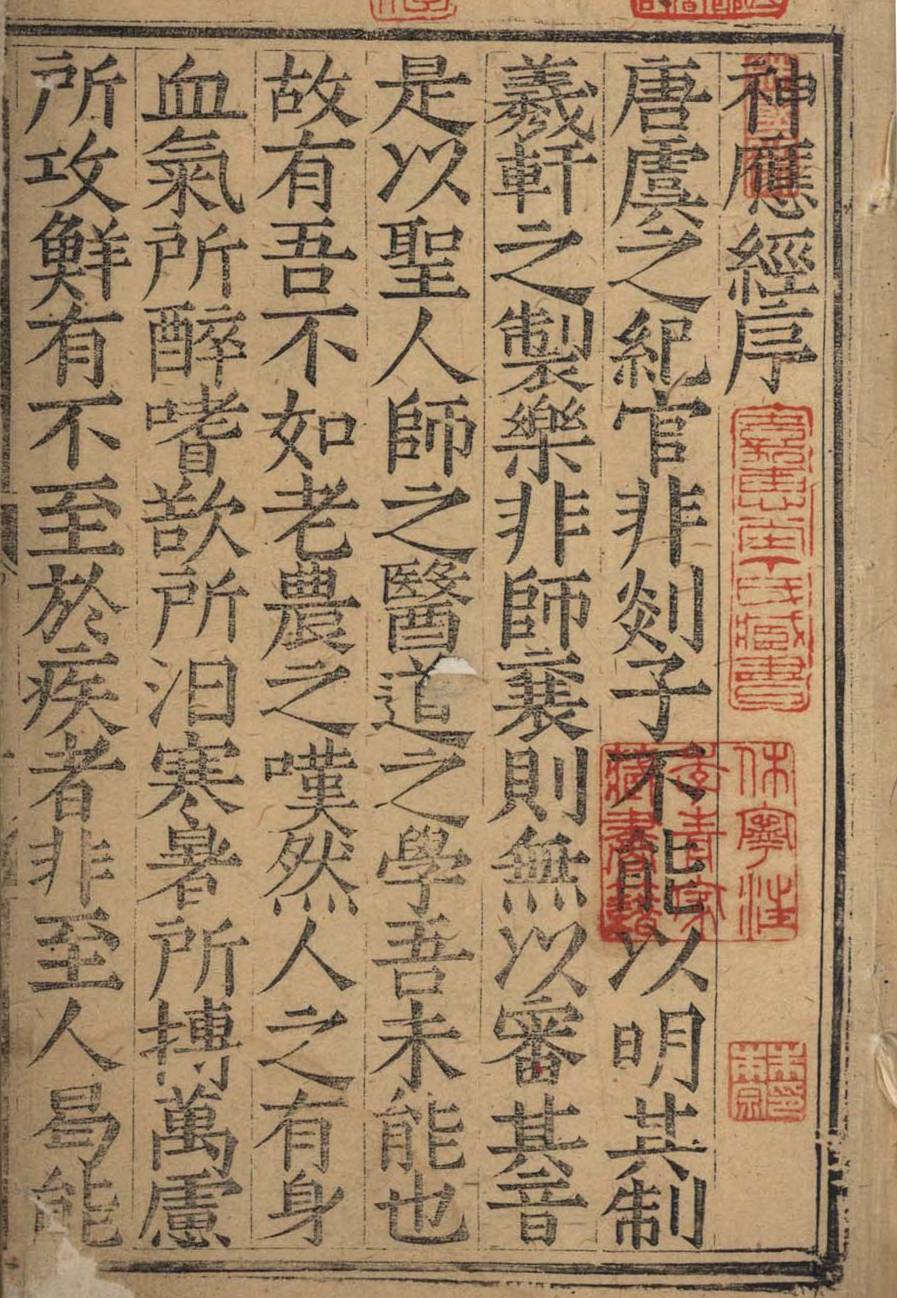 神應經序
唐虞之紀官非剡子不能以明其制
羲軒之製樂非師襄則無以審其音
是以聖人師之醫道之學吾未能也
故有吾不如老農之嘆然人之有身
血氣所醉嗜歆所汩寒暑所搏萬慮
所攻鮮有不至於疾者非至人曷能
休寧汪
季青家
藏書籍